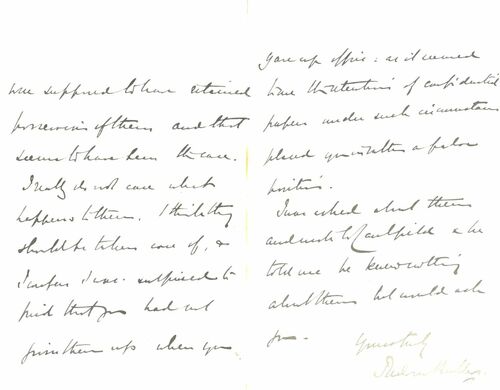 were supposed to have retained
possession of them and that
seems to have been the case.
I really do not care what
happens to them. I think they
should be taken care of, &
I confess I was surprised to
find that you had not
given them up when you
gave up office: as it seemed
to me the retention of confidential
papers under such circumstances
placed you in rather a false
position.
I was asked about them
and wrote to Caulfield & he
told me he knew nothing
about them but would ask
you.
Yours truly